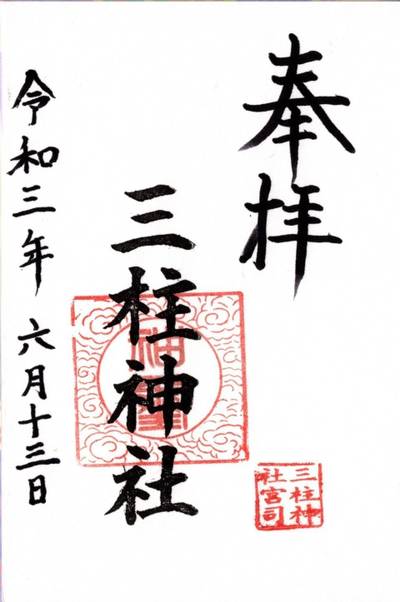 奉拝
三柱神社
令和三年 六月十三日
三柱神
社宮司